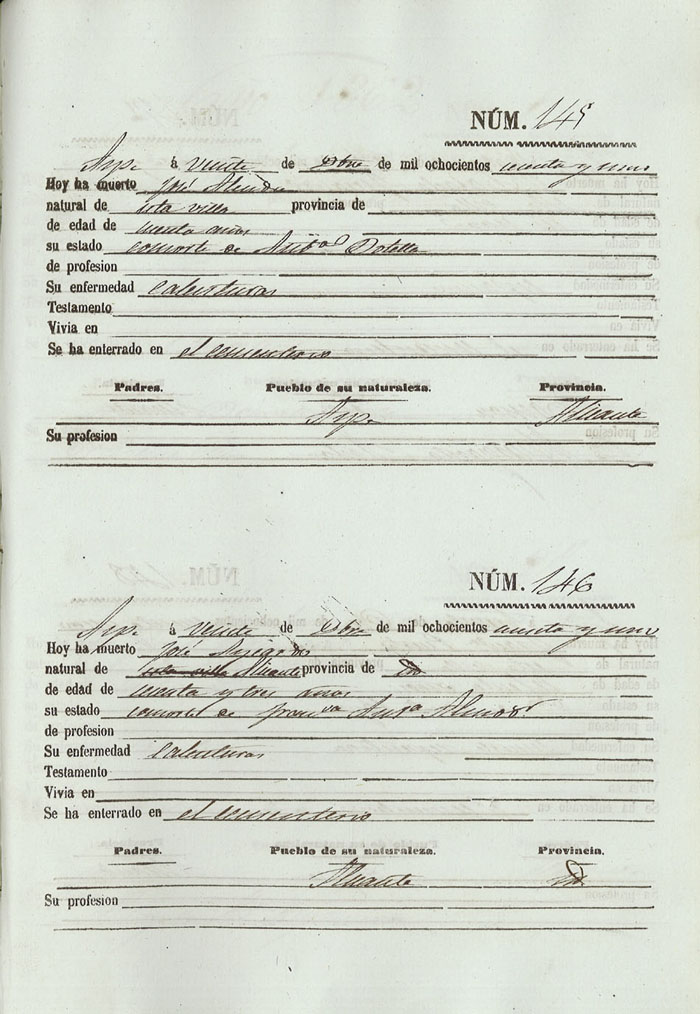 NÚM. 145
Aspe á veinte de Obre de mil ochocientos cuarenta y uno
Hoy ha muerto José
natural de esta villa provincia de
de edad de años
su estado consorte de Botella
de profesion
Su enfermedad Calenturas
Testamento
Vivia en
Se ha enterrado en el cementerio
Padres. Pueblo de su naturaleza. Provincia.
Aspe Alicante
Su profesion
NÚM. 146
Aspe á veinte de Obre de mil ochocientos cuarenta y uno
Hoy ha muerto José
natural de esta villa Alicante provincia de
de edad de y tres años
su estado consorte de
de profesion
Su enfermedad Calenturas
Testamento
Vivia en
Se ha enterrado en el cementerio
Padres. Pueblo de su naturaleza. Provincia.
Alicante
Su profesion